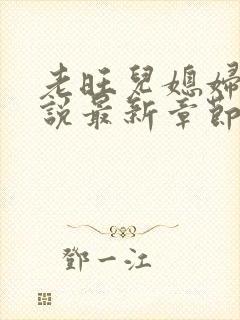 老旺兒媳婦
說最新章節
鄧一江